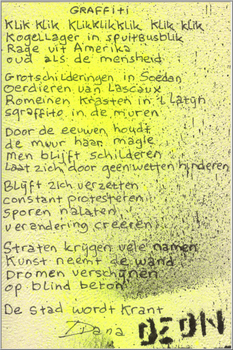 GRAFFiti
KLiK KLiK KLiKKLiKKLiK KLiK KLiK
KOGELLAGER in SPUitBUSBLiK
RAGE Uit AMERiKA
oud als de mensheid
Grotschilderingen in Soedan
Oerdieren van Lascaux
Romeinen Krasten in 't Latijn
sgraffito in de muren
Door de eeuwen houdt
de muur haar magie
Men blijft schilderen
Laat zich door geen wetten hinderen
Blijft zich verzetten
constant protesteren
sporen nalaten
verandering creëren
Straten krijgen vele namen
Kunst neemt de wand
Dromen verschijnen
op blind beton
De stad wordt Krant
Diana OZON